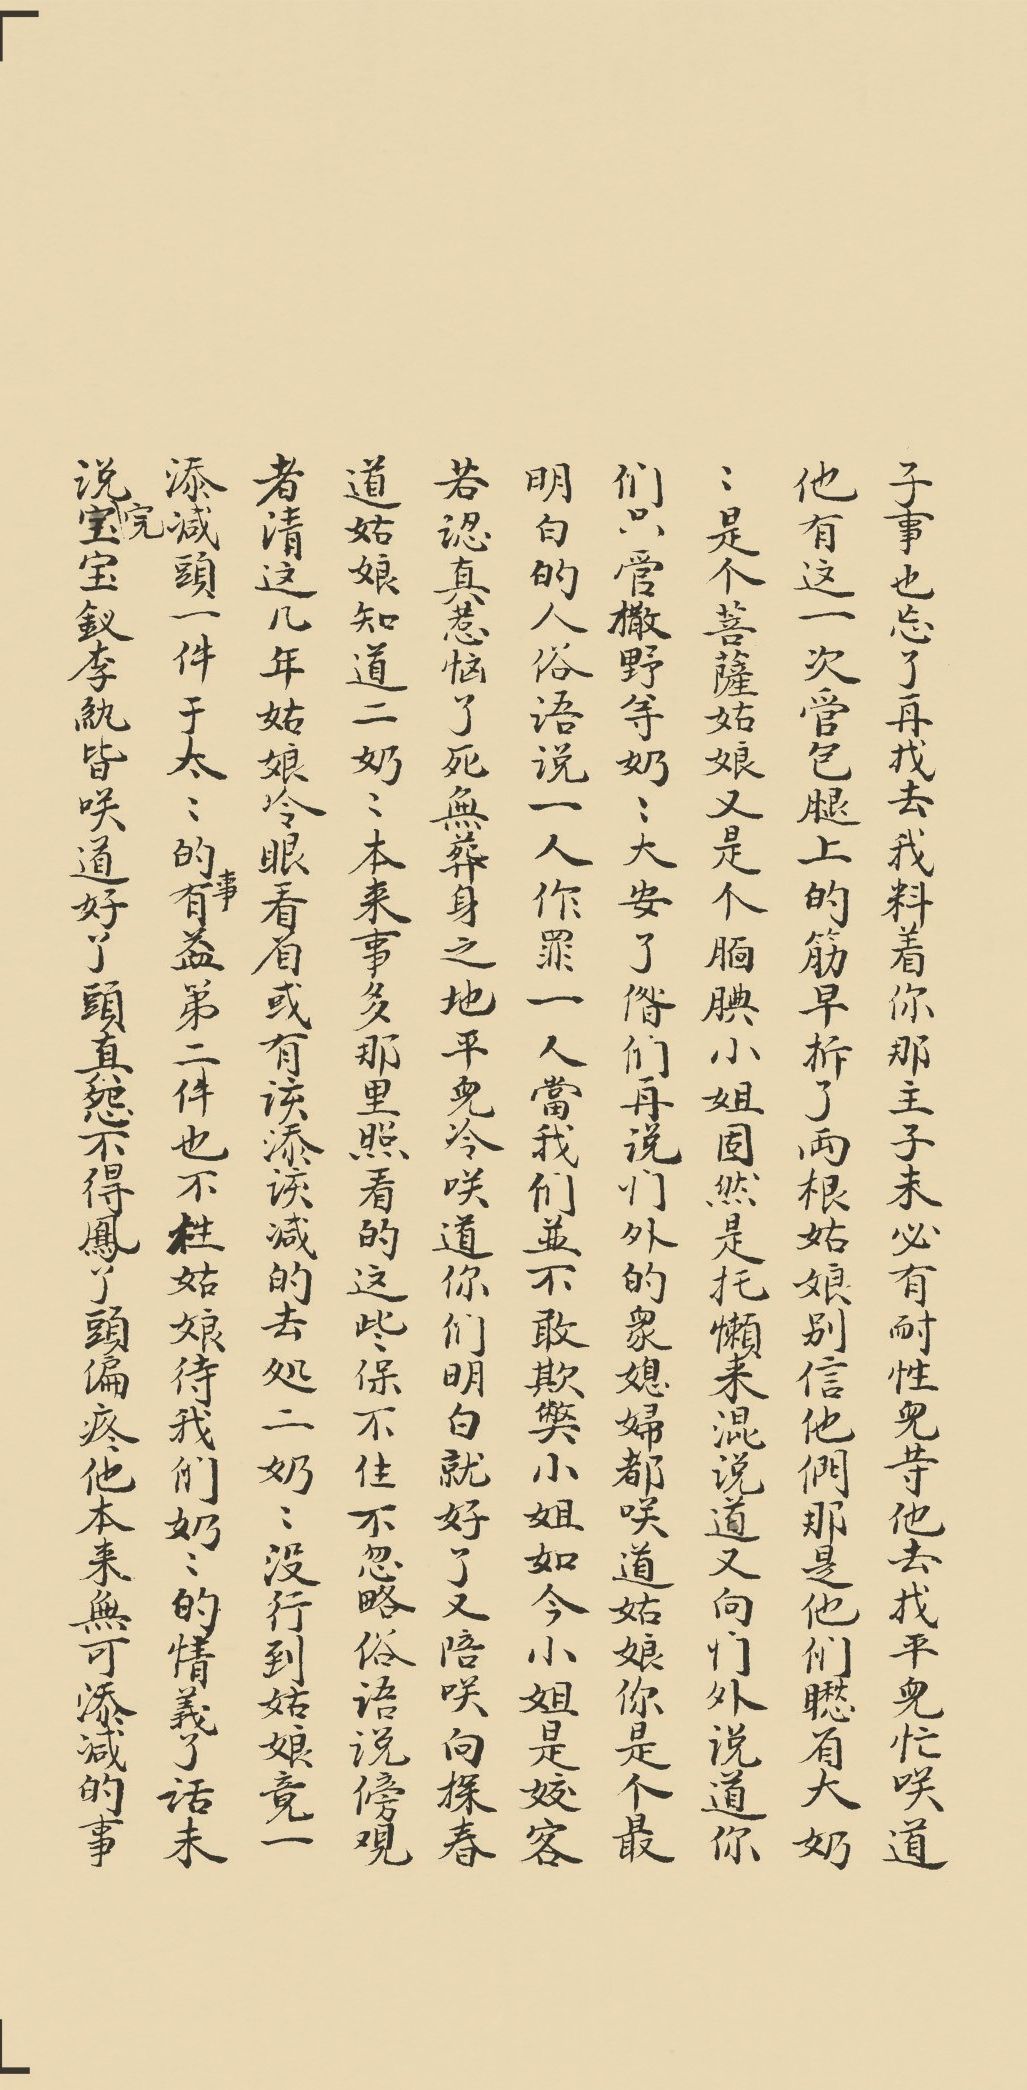 子事也忘了再找去我料着你那主子未必有耐性兒䓁他去找平兒忙咲道
他有这一次管包腿上的筋早折了两根姑娘别信他們那是他们瞅着大奶
〻是个菩薩姑娘又是个腼腆小姐固然是托懒来混说道又向门外说道你
们只管撒野等奶〻大安了偺们再说门外的眾媳婦都咲道姑娘你是个最
明白的人俗语说一人作罪一人當我们並不敢欺獘小姐如今小姐是姣客
若認真惹恼了死無葬身之地平兒冷咲道你们明白就好了又陪咲向探春
道姑娘知道二奶〻本来事多那里照看的这些保不住不忽略俗语说傍观
者清这几年姑娘冷眼看着或有该添该减的去処二奶〻没行到姑娘竟一
添减頭一件于太〻的事有益第二件也不枉姑娘待我们奶〻的情義了话未
说完宝宝釵李紈皆咲道好丫頭真怨不得鳳丫頭偏疼他本来無可添减的事